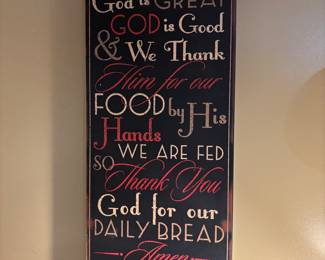 God is GREAT
GOD is Good
& We Thank
Him for our
FOOD by His
Hands
WE ARE FED
SO
Thank You
God for our
DAILY BREAD
Amen